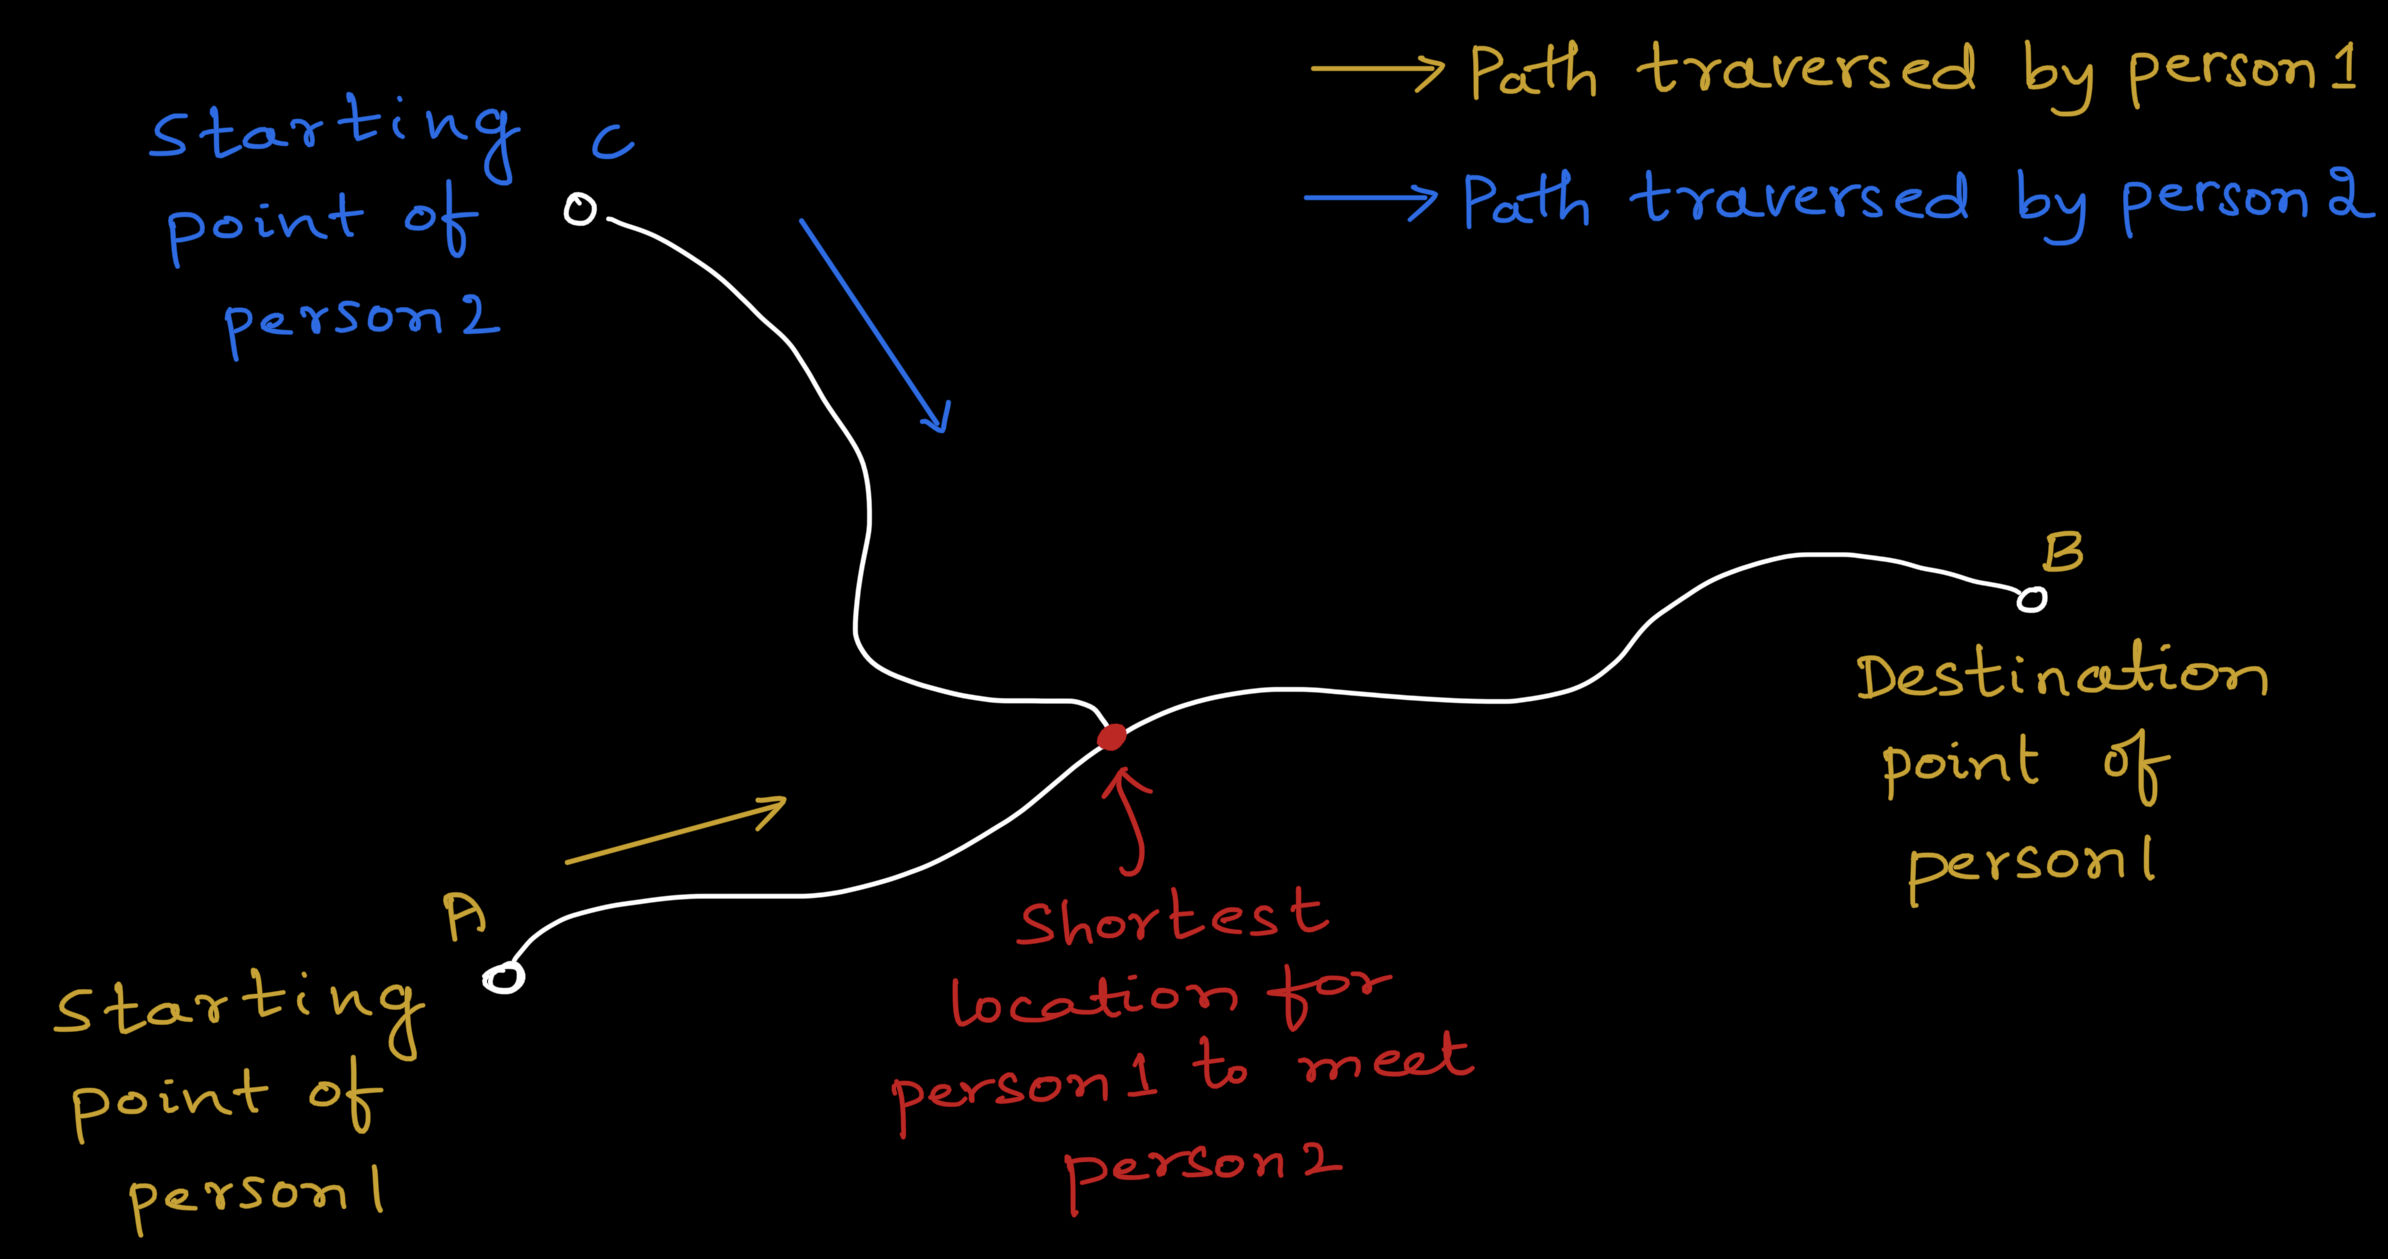 Path traversed by person 1
Path traversed by person 2
Starting
point of
person 2
C
B
Destination
point of
person 1
A
Starting
point of
person 1
Shortest
location for
person 1 to meet
person 2